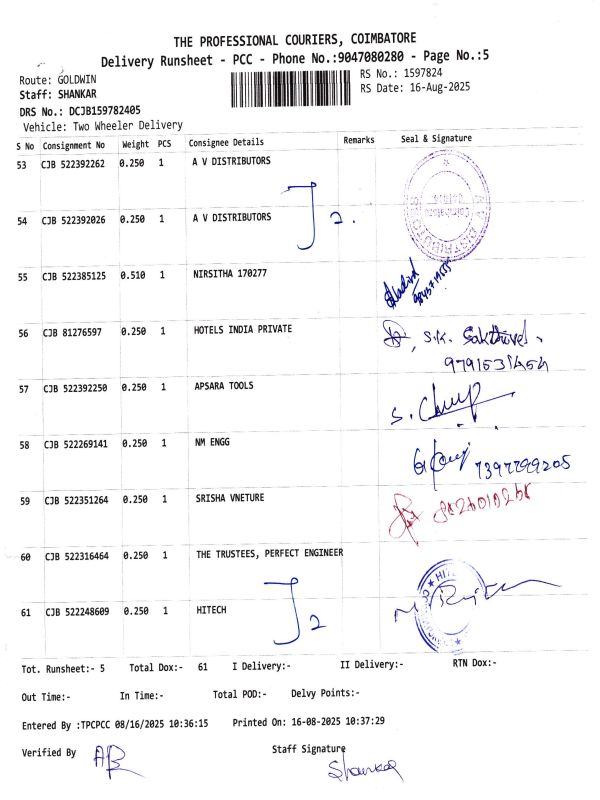 THE PROFESSIONAL COURIERS, COIMBATORE
Delivery Runsheet - PCC - Phone No.:9047080280 - Page No.:5
Route: GOLDWIN
RS No.: 1597824
Staff: SHANKAR
RS Date: 16-Aug-2025
DRS No.: DCJB159782405
Vehicle: Two Wheeler Delivery
S No Consignment No Weight PCS Consignee Details Remarks Seal & Signature
53 CJB 522392262 0.250 1 A V DISTRIBUTORS
2.
54 CJB 522392026 0.250 1 A V DISTRIBUTORS
55 CJB 522385125 0.510 1 NIRSITHA 170277
56 CJB 81276597 0.250 1 HOTELS INDIA PRIVATE
S.K. Sakthivel
57 CJB 522392250 0.250 1 APSARA TOOLS
58 CJB 522269141 0.250 1 NM ENGG
7397799205
59 CJB 522351264 0.250 1 SRISHA VNETURE
60 CJB 522316464 0.250 1 THE TRUSTEES, PERFECT ENGINEER
61 CJB 522248609 0.250 1 HITECH
2
Tot. Runsheet:- 5 Total Dox:- 61 I Delivery:- II Delivery:- RTN Dox:-
Out Time:- In Time:- Total POD:- Delvy Points:-
Entered By :TPCPCC 08/16/2025 10:36:15 Printed On: 16-08-2025 10:37:29
Verified By Staff Signature
Shankar